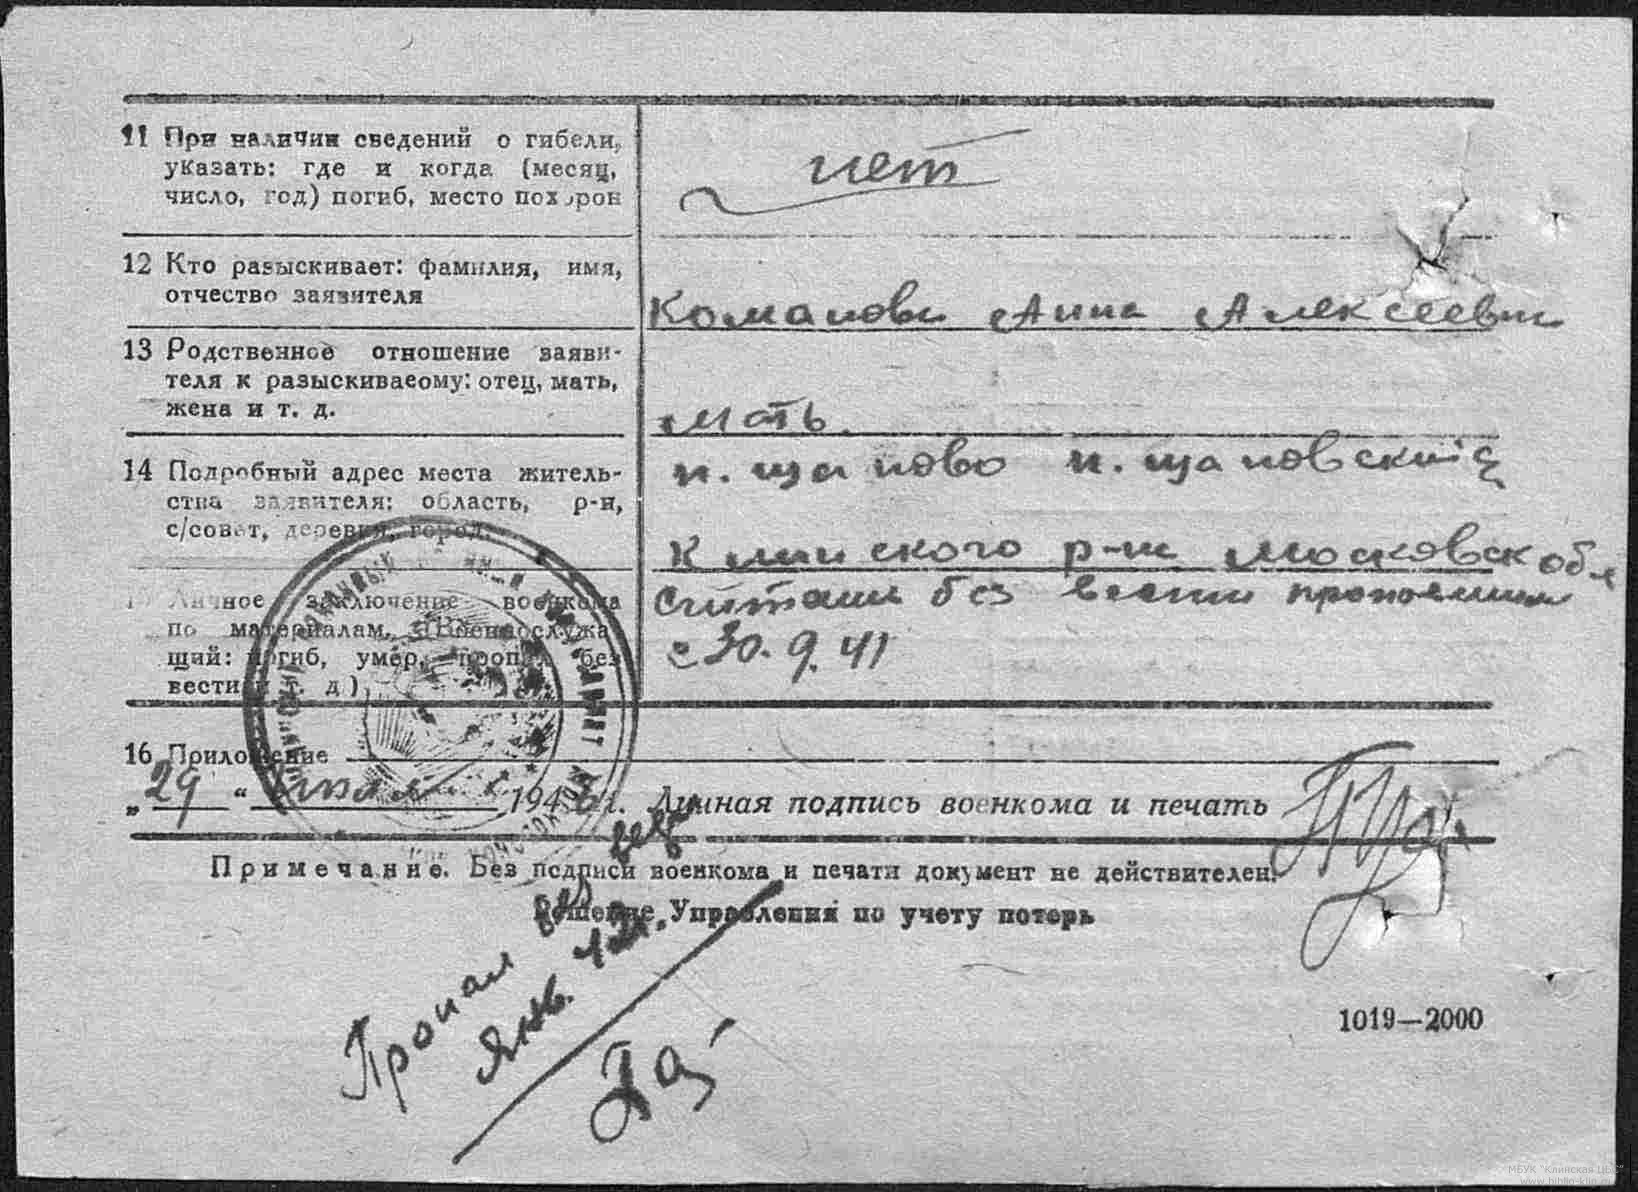 11 При наличии сведений о гибели,
указать: где и когда (месяц,
число, год) погиб, место похорон
нет
12 Кто разыскивает: фамилия, имя,
отчество заявителя
Комапова Анна Алексеевна
13 Родственное отношение заяви-
теля к разыскиваеому: отец, мать,
жена и т. д.
мать.
14 Подробный адрес места житель-
ства заявителя: область, р-н,
с/совет, деревня, город.
п. щапово п. щаповский
Клинского р-на Московск обл
15 Личное заключение военкома
по материалам. (Военнослужа
щий: погиб, умер, пропал без
вести и т. д)
Считаем без вести пропавшим
с 30. 9. 41
16 Приложение
„29“ июля 1946 г. Личная подпись военкома и печать
Примечание. Без подписи военкома и печати документ не действителен.
Решение Управления по учету потерь
Пропал без вести
янв. 42г.
1019—2000
МБУК "Клинская ЦБС"
www.biblio-klin.ru